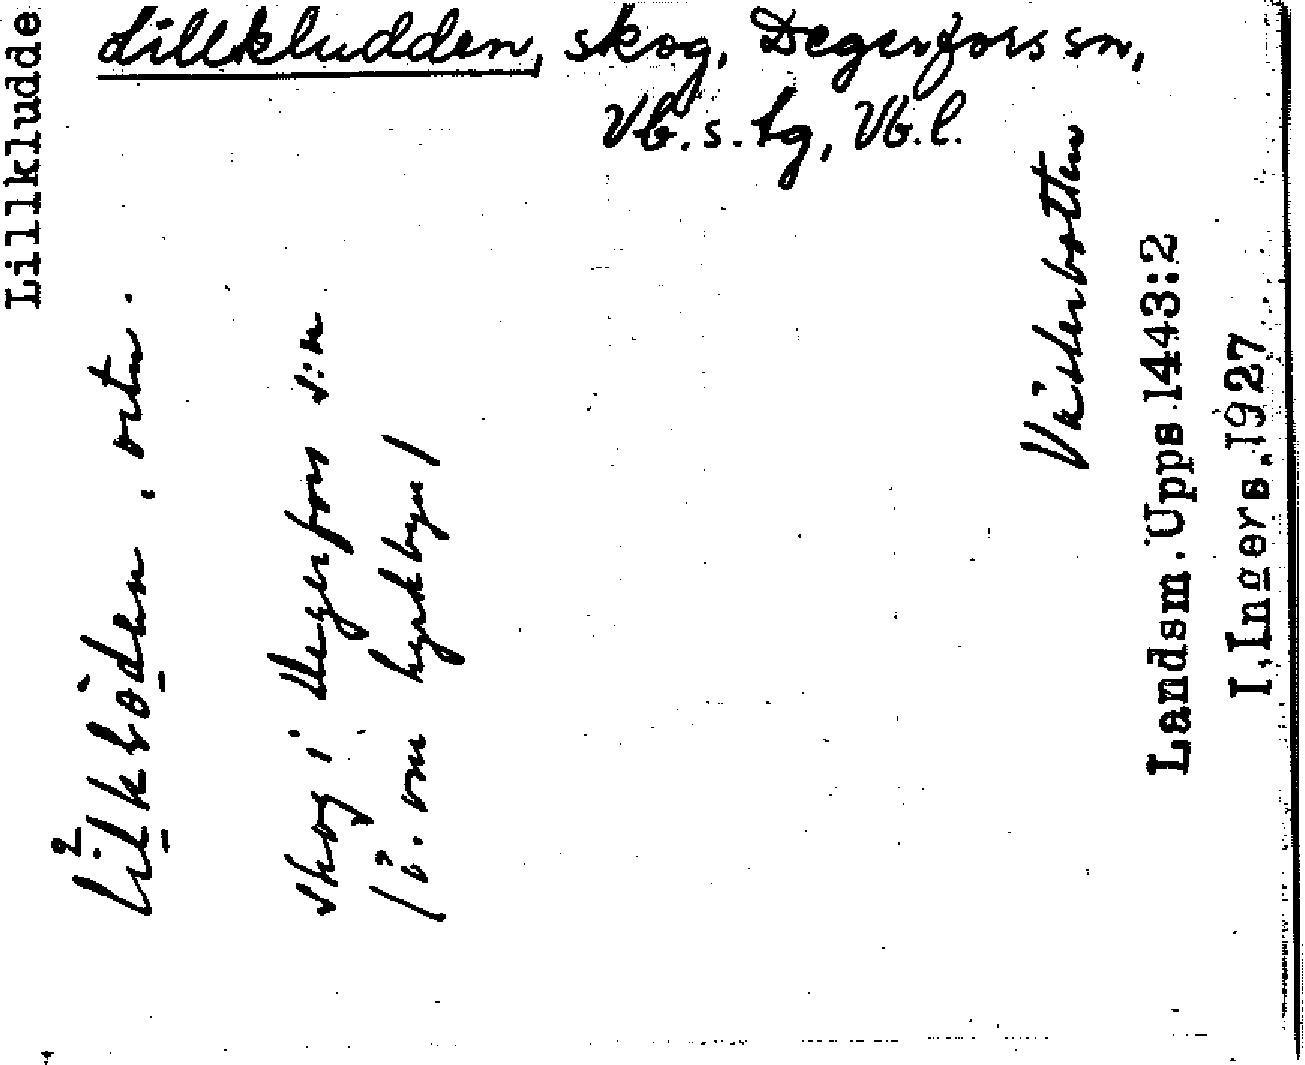 Lillkludden, skog, Degerfors sn,
Vb.s.tg, Vb.l.
Lillkludde
ortn.
skog i Degerfors s:n
/ö. om kyrkbyn/
Västerbotten
Landsm. Upps 1443:2
I. Ingers. 1927